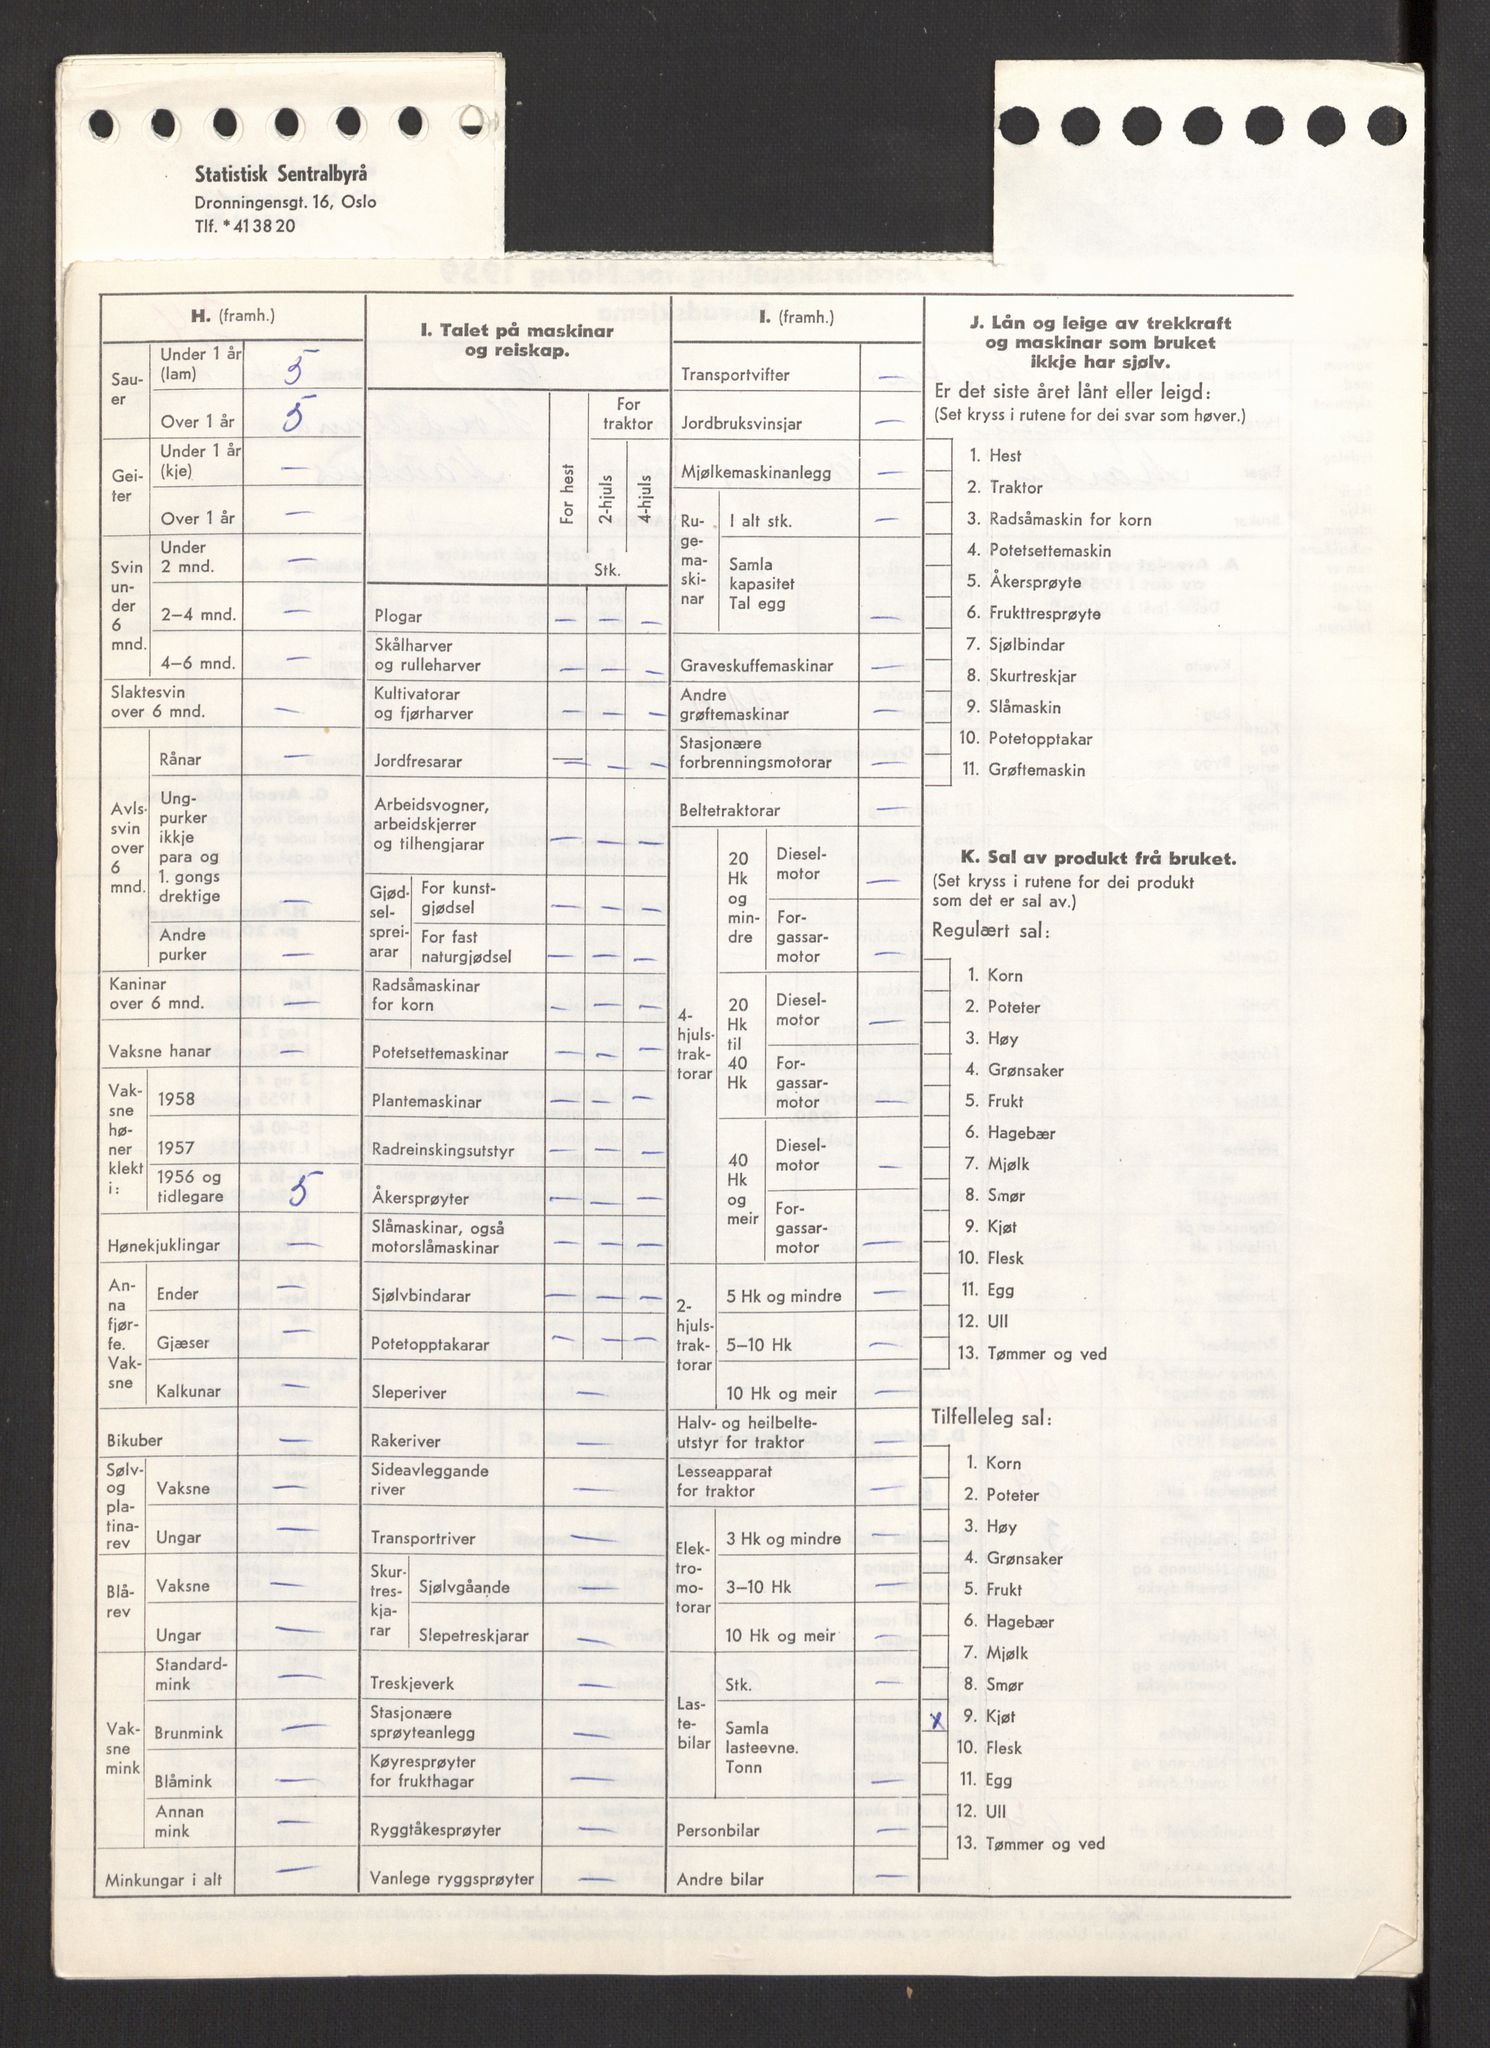 Statistisk Sentralbyrå
Dronningensgt. 16, Oslo
Tlf. *41 38 20
H. (framh.)
Sauer
Under 1 år (lam) 5
Over 1 år 5
Geiter
Under 1 år (kje) —
Over 1 år —
Svin under 6 mnd.
Under 2 mnd. —
2–4 mnd. —
4–6 mnd. —
Slaktesvin over 6 mnd. —
Avlssvin over 6 mnd.
Rånar —
Ungpurker ikkje para og 1. gongs drektige —
Andre purker —
Kaninar over 6 mnd. —
Vaksne hanar —
Vaksne høner klekt i:
1958 —
1957 —
1956 og tidlegare 5
Hønekjuklingar —
Anna fjørfe. Vaksne
Ender —
Gjæser —
Kalkunar —
Bikuber —
Sølv- og platinarev
Vaksne —
Ungar —
Blårev
Vaksne —
Ungar —
Vaksne mink
Standardmink —
Brunmink —
Blåmink —
Annan mink —
Minkungar i alt —
I. Talet på maskinar
og reiskap.
For hest
For traktor
2-hjuls
4-hjuls
Stk.
Plogar — — —
Skålharver og rulleharver — — —
Kultivatorar og fjørharver — — —
Jordfresarar — — —
Arbeidsvogner, arbeidskjerrer og tilhengjarar — — —
Gjødselspreiarar
For kunstgjødsel — — —
For fast naturgjødsel — — —
Radsåmaskinar for korn — — —
Potetsettemaskinar — — —
Plantemaskinar — — —
Radreinskingsutstyr — — —
Åkersprøyter — — —
Slåmaskinar, også motorslåmaskinar — — —
Sjølvbindarar — — —
Potetopptakarar — — —
Sleperiver —
Rakeriver —
Sideavleggande river —
Transportriver —
Skurtreskjarar
Sjølvgåande —
Slepetreskjarar —
Treskjeverk —
Stasjonære sprøyteanlegg —
Køyresprøyter for frukthagar —
Ryggtåkesprøyter —
Vanlege ryggsprøyter —
I. (framh.)
Transportvifter —
Jordbruksvinsjar —
Mjølkemaskinanlegg —
Rugemaskinar
I alt stk. —
Samla kapasitet Tal egg —
Graveskuffemaskinar —
Andre grøftemaskinar —
Stasjonære forbrenningsmotorar —
Beltetraktorar —
4-hjulstraktorar
20 Hk og mindre
Dieselmotor —
Forgassarmotor —
20 Hk til 40 Hk
Dieselmotor —
Forgassarmotor —
40 Hk og meir
Dieselmotor —
Forgassarmotor —
2-hjulstraktorar
5 Hk og mindre —
5–10 Hk —
10 Hk og meir —
Halv- og heilbelteutstyr for traktor —
Lesseapparat for traktor —
Elektromotorar
3 Hk og mindre —
3–10 Hk —
10 Hk og meir —
Lastebilar
Stk. —
Samla lasteevne. Tonn —
Personbilar —
Andre bilar —
J. Lån og leige av trekkraft
og maskinar som bruket
ikkje har sjølv.
Er det siste året lånt eller leigd:
(Set kryss i rutene for dei svar som høver.)
1. Hest
2. Traktor
3. Radsåmaskin for korn
4. Potetsettemaskin
5. Åkersprøyte
6. Frukttresprøyte
7. Sjølbindar
8. Skurtreskjar
9. Slåmaskin
10. Potetopptakar
11. Grøftemaskin
K. Sal av produkt frå bruket.
(Set kryss i rutene for dei produkt
som det er sal av.)
Regulært sal:
1. Korn
2. Poteter
3. Høy
4. Grønsaker
5. Frukt
6. Hagebær
7. Mjølk
8. Smør
9. Kjøt
10. Flesk
11. Egg
12. Ull
13. Tømmer og ved
Tilfelleleg sal:
1. Korn
2. Poteter
3. Høy
4. Grønsaker
5. Frukt
6. Hagebær
7. Mjølk
8. Smør
x 9. Kjøt
10. Flesk
11. Egg
12. Ull
13. Tømmer og ved